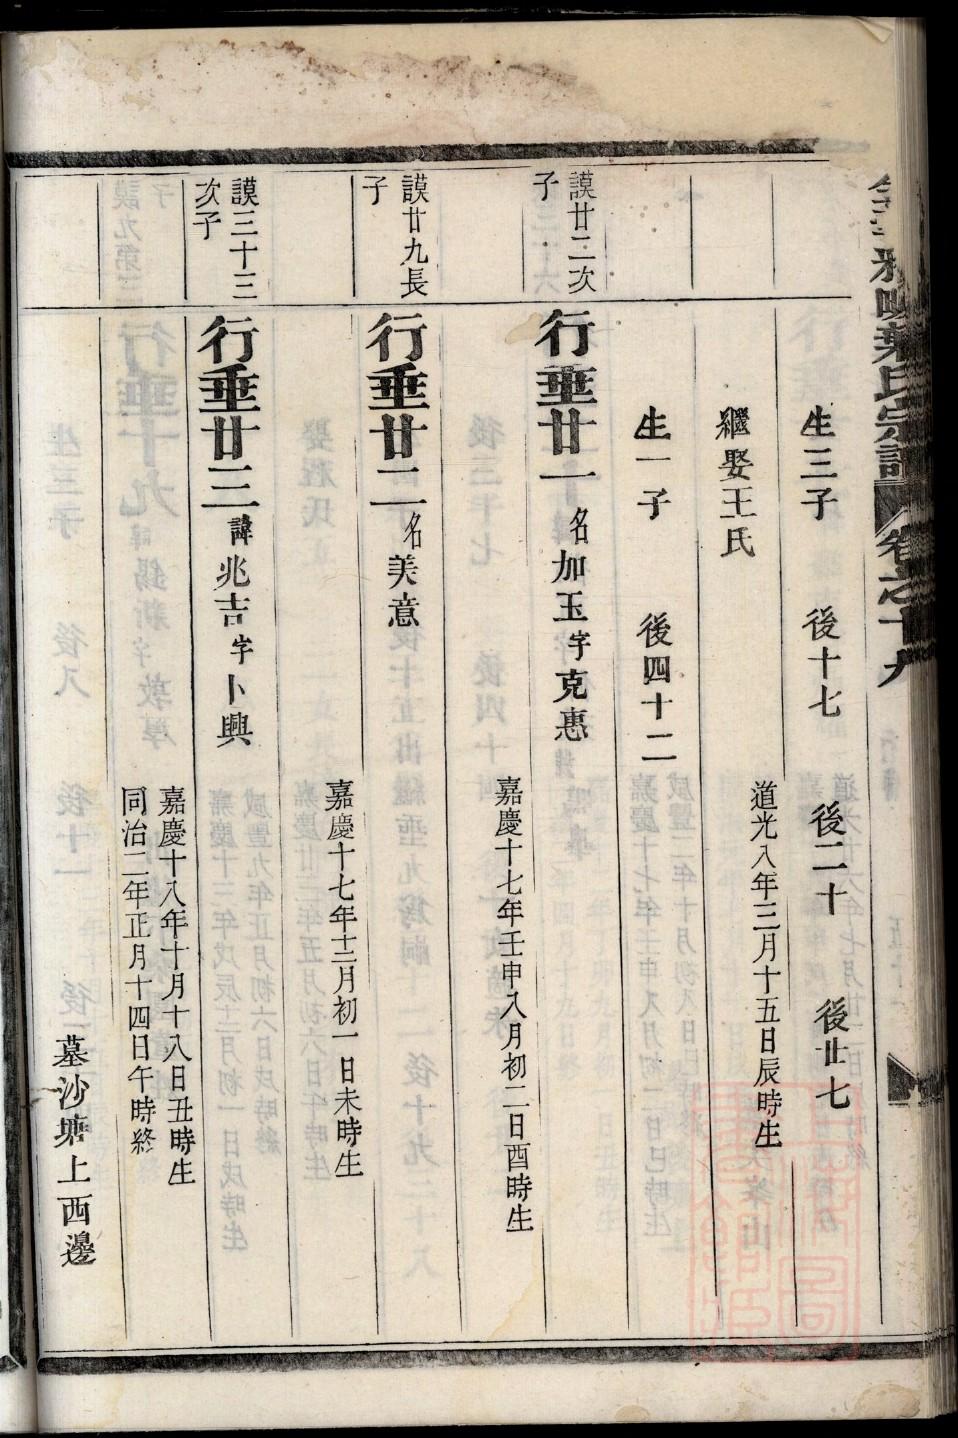 葉氏宗譜 卷之十九
生三子 後十七 後二十 後廿七
繼娶王氏 道光八年三月十五日辰時生
生一子 後四十二
謨廿二次子
行垂廿一 名加玉字克惠 嘉慶十七年壬申八月初二日酉時生
謨廿九長子
行垂廿二 名美意 嘉慶十七年十二月初一日未時生
謨三十三次子
行垂廿三 諱兆吉字卜興 嘉慶十八年十月十八日丑時生
同治二年正月十四日午時終
墓沙塘上西邊